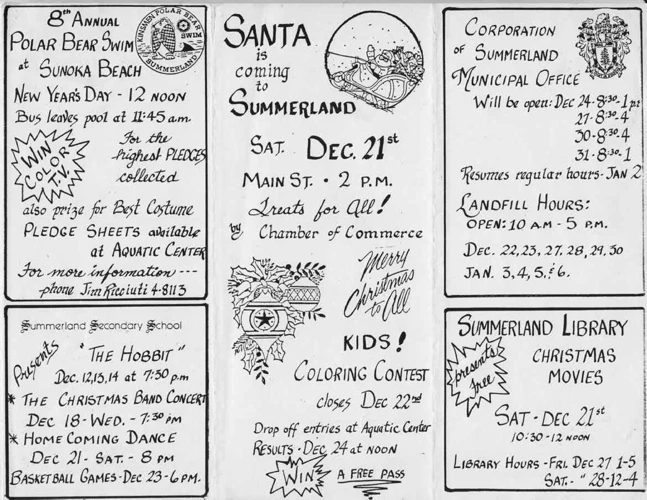 8th ANNUAL
POLAR BEAR SWIM
at SUNOKA BEACH
POLAR BEAR
SWIM
SUMMERLAND
NEW YEAR'S DAY - 12 NOON
Bus leaves pool at 11:45 am
WIN
COLOR
T.V.
For the
highest PLEDGES
collected
also prize for Best Costume
PLEDGE SHEETS available
at AQUATIC CENTER
For more information ---
phone Jim Ricciuti 4-8113
Summerland Secondary School
Presents
"THE HOBBIT"
Dec. 12,13,14 at 7:30 p.m
* THE CHRISTMAS BAND CONCERT
DEC 18 - WED. - 7:30 PM
* HOME COMING DANCE
DEC 21 - SAT. - 8 PM
BASKETBALL GAMES - DEC 23 - 6 PM.
SANTA
is
coming
to
SUMMERLAND
SAT. DEC. 21st
MAIN ST. • 2 P.M.
Treats for All!
by Chamber of Commerce
Merry
Christmas
to All
KIDS!
COLORING CONTEST
closes DEC 22nd
Drop off entries at Aquatic Center
RESULTS - DEC 24 at NOON
WIN
A FREE PASS
CORPORATION
OF SUMMERLAND
MUNICIPAL OFFICE
Will be open: DEC 24 - 8:30 - 1 pm
27 - 8:30 - 4
30 - 8:30 - 4
31 - 8:30 - 1
Resumes regular hours - JAN 2
LANDFILL HOURS:
OPEN: 10 AM - 5 P.M.
DEC. 22, 23, 27, 28, 29, 30
JAN. 3, 4, 5, & 6.
SUMMERLAND LIBRARY
presents
Free
CHRISTMAS
MOVIES
SAT - DEC 21st
10:30 - 12 NOON
LIBRARY HOURS - FRI. DEC 27 1-5
SAT. - " 28 - 12-4